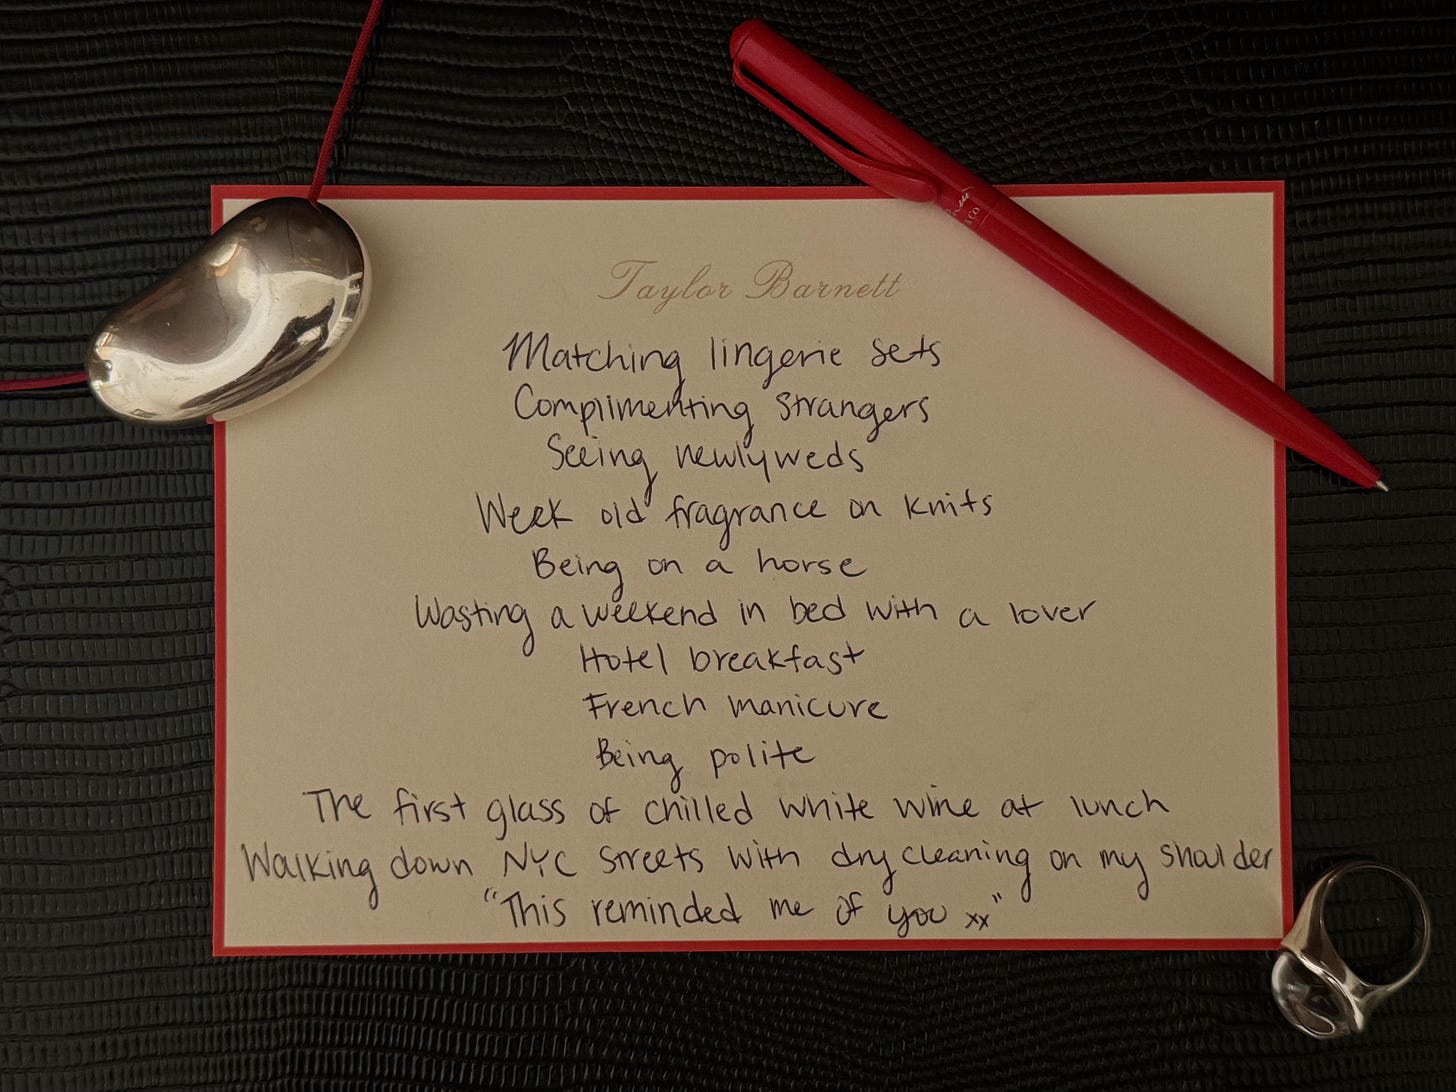 Taylor Barnett
Matching lingerie sets
Complimenting strangers
Seeing newlyweds
Week old fragrance on knits
Being on a horse
Wasting a weekend in bed with a lover
Hotel breakfast
French manicure
Being polite
The first glass of chilled white wine at lunch
Walking down NYC streets with dry cleaning on my shoulder
"This reminded me of you xx"